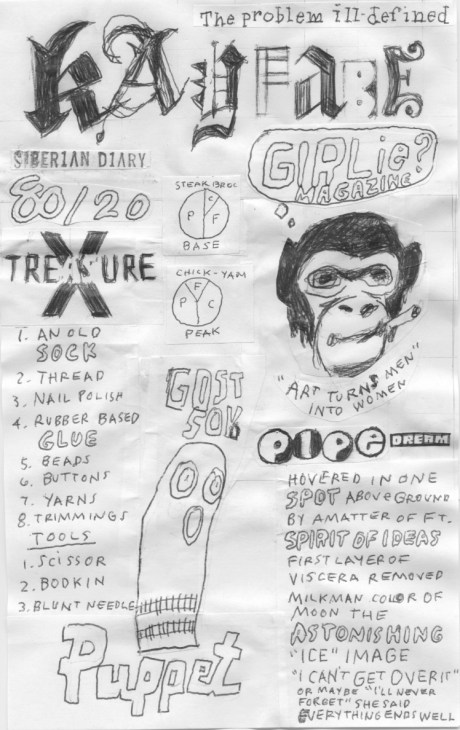 The problem ill-defined
KAYFABE
SIBERIAN DIARY
80/20
STEAK BROC
P F C
BASE
GIRLie?
MAGAZINE
TREASURE
X
CHICK-YAM
P F C
PEAK
"ART TURNS MEN"
INTO WOMEN
1. AN OLD
SOCK
2. THREAD
3. NAIL POLISH
4. RUBBER BASED
GLUE
5. BEADS
6. BUTTONS
7. YARNS
8. TRIMMINGS
TOOLS
1. SCISSOR
2. BODKIN
3. BLUNT NEEDLE
GOST
SOK
Puppet
PIPE DREAM
HOVERED IN ONE
SPOT ABOVE GROUND
BY A MATTER OF FT.
SPIRIT OF IDEAS
FIRST LAYER OF
VISCERA REMOVED
MILKMAN COLOR OF
MOON THE
ASTONISHING
"ICE" IMAGE
"I CAN'T GET OVER IT"
OR MAYBE "I'LL NEVER
FORGET" SHE SAID
EVERYTHING ENDS WELL